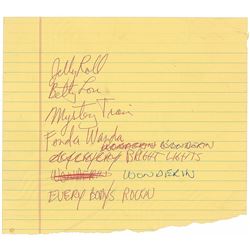 Jelly Roll
Betty Lou
Mystery Train
Fonda Wanda
WONDERIN
BRIGHT LIGHTS
WONDERIN WONDERIN
EVERY BODYS ROCKIN